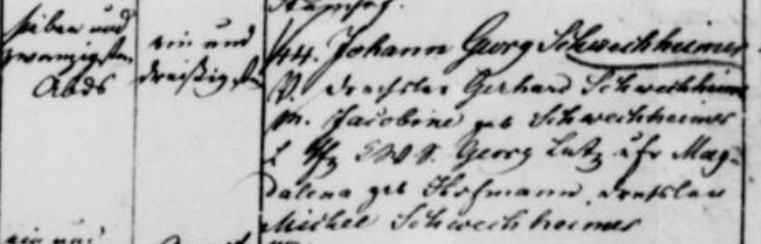 sieben und
zwanzigsten
Abds
ein und
dreißigsten
44. Johann Georg Schweickheimer
V. Drechsler Gerhard Schweickheimer
M. Jacobine geb Schweickheimer
Georg Lutz u fr Mag=
dalena geb Hofmann, Drechsler
Michel Schweickheimer
ein und